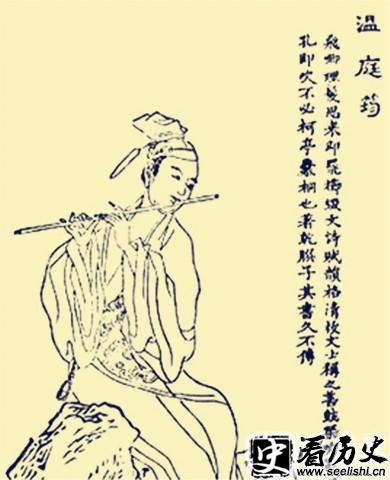 温庭筠
飛卿理髮思来即罷櫛綴文詩賦韻格清拔文士稱之善鼓琴
孔即吹不必柯亭爨桐也著乾䐑子其書久不傳
史看历史
www.seelishi.cn